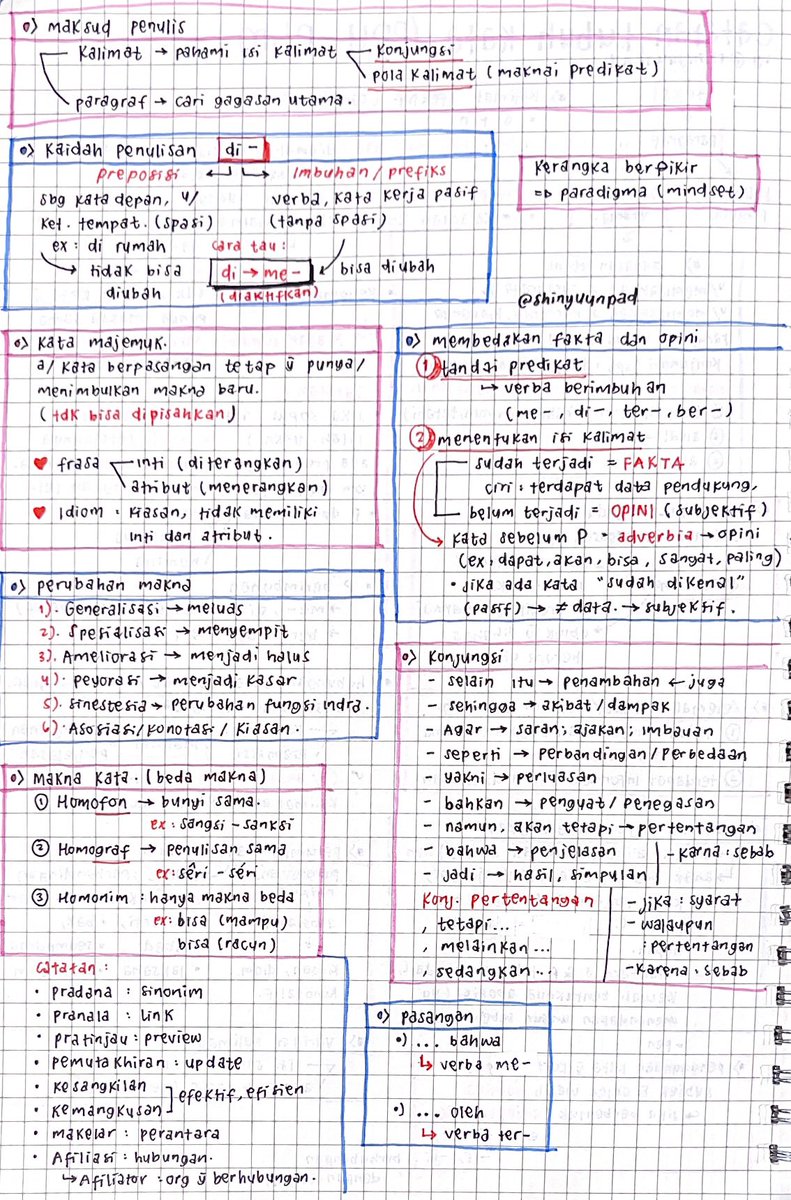 o> maksud penulis
Kalimat → pahami isi kalimat
Konjungsi
pola kalimat (maknai predikat)
paragraf → cari gagasan utama.
o> Kaidah penulisan di-
preposisi
sbg kata depan, u/
ket. tempat. (spasi)
ex: di rumah
→ tidak bisa
diubah
Imbuhan/prefiks
verba, kata kerja pasif
(tanpa spasi)
cara tau:
di → me-
(diaktifkan)
bisa diubah
Kerangka berpikir
=> paradigma (mindset)
@shinyuunpad
o> Kata majemuk.
a/ kata berpasangan tetap ÿ punya/
menimbulkan makna baru.
(tdk bisa dipisahkan)
♥ frasa
inti (diterangkan)
atribut (menerangkan)
♥ Idiom : kiasan, tidak memiliki
inti dan atribut.
o> membedakan fakta dan opini
1) tandai predikat
↳ verba berimbuhan
(me-, di-, ter-, ber-)
2) menentukan isi kalimat
sudah terjadi = FAKTA
ciri : terdapat data pendukung,
belum terjadi = OPINI (subjektif)
kata sebelum P - adverbia → opini
(ex: dapat, akan, bisa, sangat, paling)
• jika ada kata "sudah dikenal"
(pasif) → ≠ data. → subjektif.
o> perubahan makna
1). Generalisasi → meluas
2). Spesialisasi → menyempit
3). Ameliorasi → menjadi halus
4). peyorasi → menjadi kasar
5). sinestesia → perubahan fungsi indra.
6). Asosiasi/konotasi/kiasan.
o> Konjungsi
- selain itu → penambahan ← juga
- sehingga → akibat/dampak
- Agar → saran; ajakan; imbauan
- seperti → perbandingan/perbedaan
- yakni → perluasan
- bahkan → penguat/penegasan
- namun, akan tetapi → pertentangan
- bahwa → penjelasan
- jadi → hasil, simpulan
- karna : sebab
Konj. pertentangan
, tetapi...
, melainkan...
, sedangkan...
- jika : syarat
- walaupun
: pertentangan
- karena : sebab
o> makna kata. (beda makna)
1 Homofon → bunyi sama.
ex : sangsi - sanksi
2 Homograf → penulisan sama
ex: sêri - séri
3 Homonim : hanya makna beda
ex: bisa (mampu)
bisa (racun)
catatan :
• pradana : sinonim
• pranala : link
• pratinjau : preview
• pemutakhiran : update
• kesangkilan
• kemangkusan
] efektif, efisien
• makelar : perantara
• Afiliasi : hubungan.
↳ Afiliator : org ÿ berhubungan.
o> pasangan
•) ... bahwa
↳ verba me-
•) ... oleh
↳ verba ter-